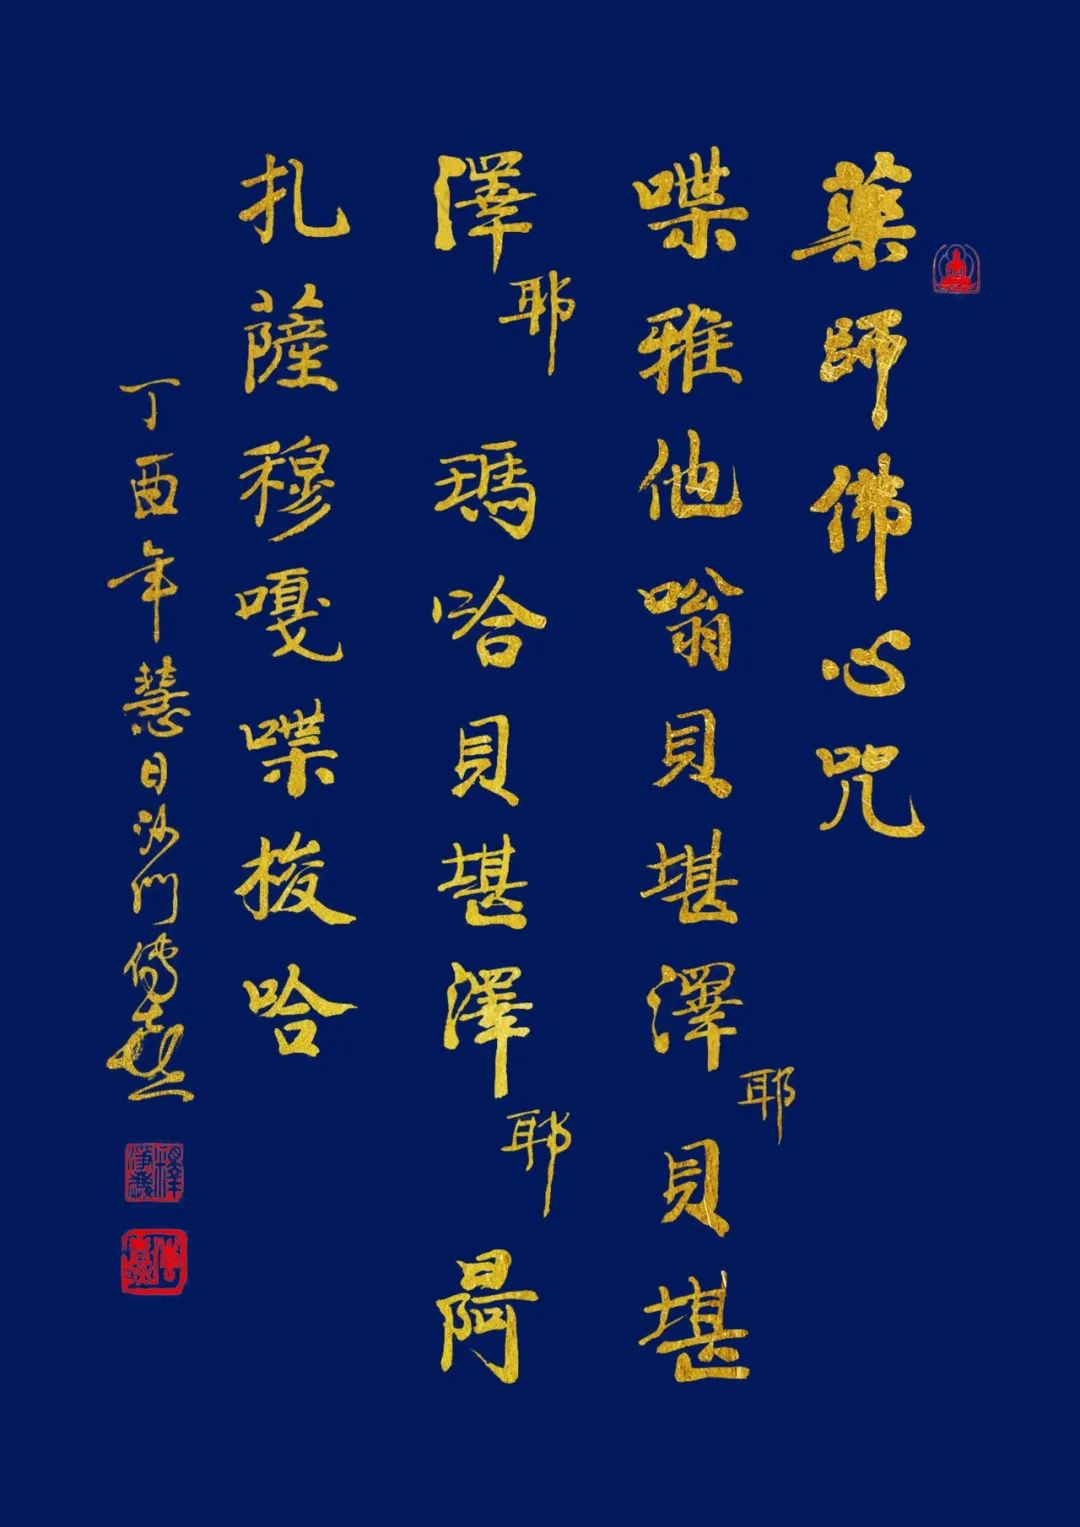 薬師佛心咒
喋雅他嗡貝堪澤耶貝堪
澤耶瑪哈貝堪澤耶日阿
扎薩穆嘎喋梭哈
丁酉年慧日沙門傳喜